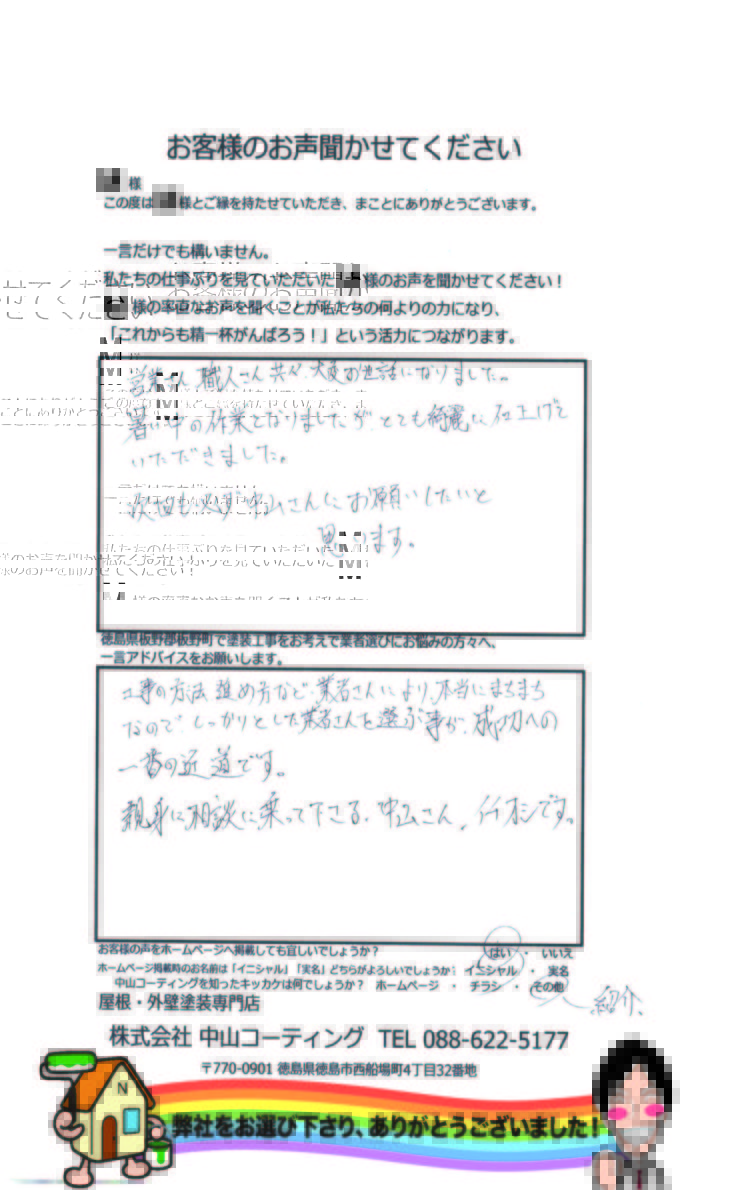 お客様のお声聞かせてください
様
この度は 様とご縁を持たせていただき、まことにありがとうございます。
一言だけでも構いません。
私たちの仕事ぶりを見ていただいた 様のお声を聞かせてください！
様の率直なお声を聞くことが私たちの何よりの力になり、
「これからも精一杯がんばろう！」という活力につながります。
営業さん、職人さん共々、大変お世話になりました。
暑い中の作業となりましたが、とても綺麗に仕上げて
いただきました。
次回も必ず中山さんにお願いしたいと
思います。
徳島県板野郡板野町で塗装工事をお考えで業者選びにお悩みの方々へ、
一言アドバイスをお願いします。
工事の方法、進め方など、業者さんにより、本当にまちまち
なので、しっかりとした業者さんを選ぶ事が、成功への
一番の近道です。
親身に相談に乗って下さる、中山さん、イチオシです。
お客様の声をホームページへ掲載しても宜しいでしょうか？ はい ・ いいえ
ホームページ掲載時のお名前は「イニシャル」「実名」どちらがよろしいでしょうか： イニシャル ・ 実名
中山コーティングを知ったキッカケは何でしょうか？ ホームページ ・ チラシ ・ その他
紹介、
屋根・外壁塗装専門店
株式会社 中山コーティング TEL 088-622-5177
〒770-0901 徳島県徳島市西船場町4丁目32番地
N
弊社をお選び下さり、ありがとうございました！